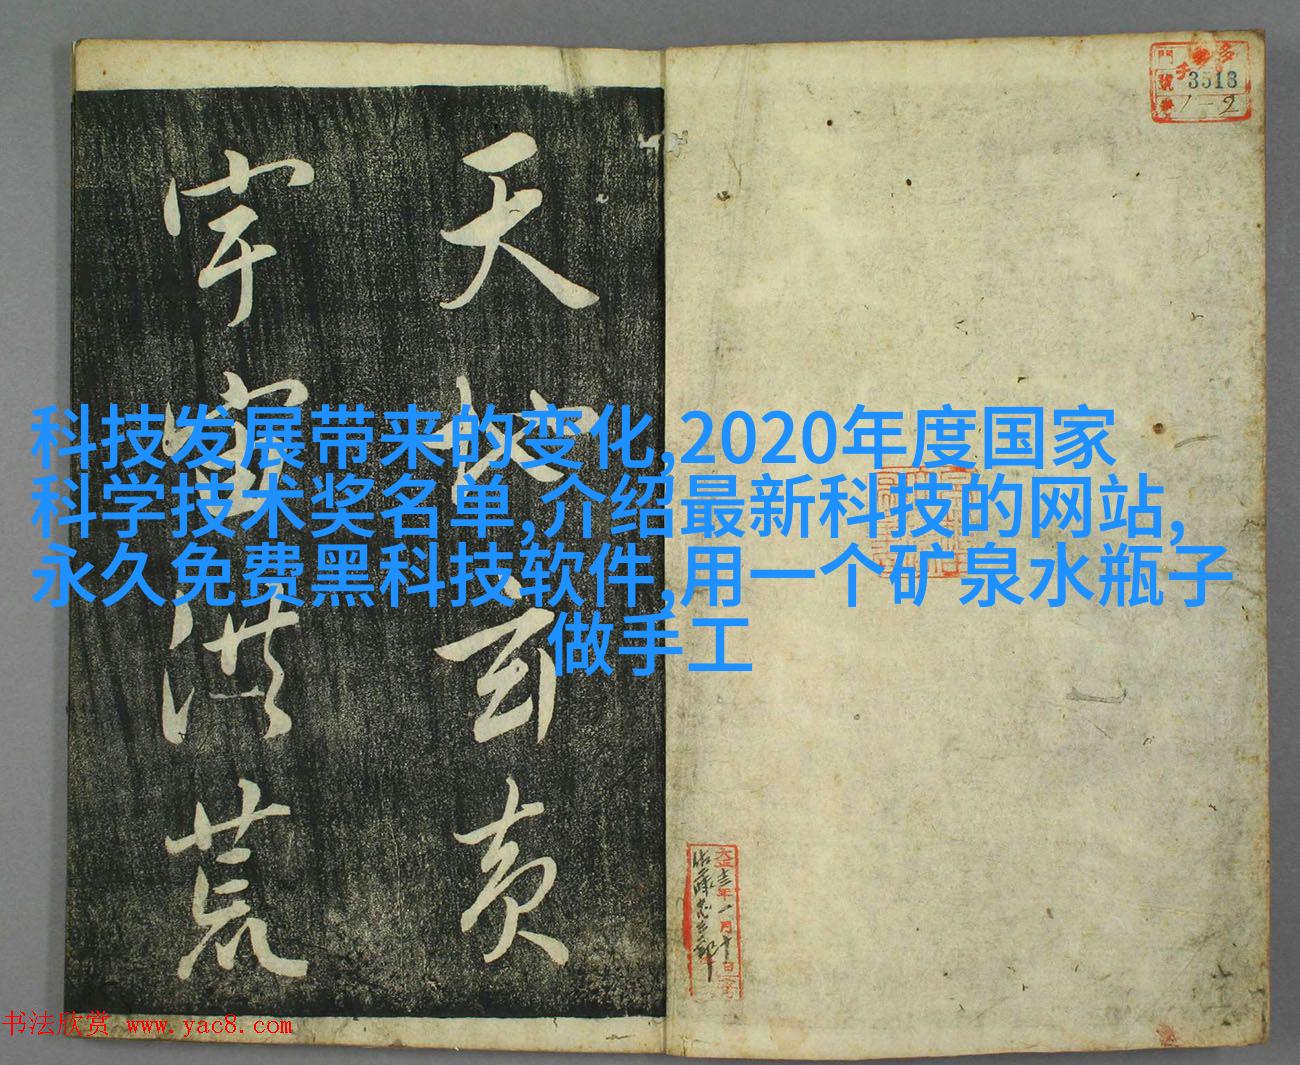 天地玄黄
宇宙洪荒
3513
1-2
科技发展带来的变化,2020年度国家
科学技术奖名单,介绍最新科技的网站,
永久免费黑科技软件,用一个矿泉水瓶子
做手工
书法欣赏 www.yac8.com